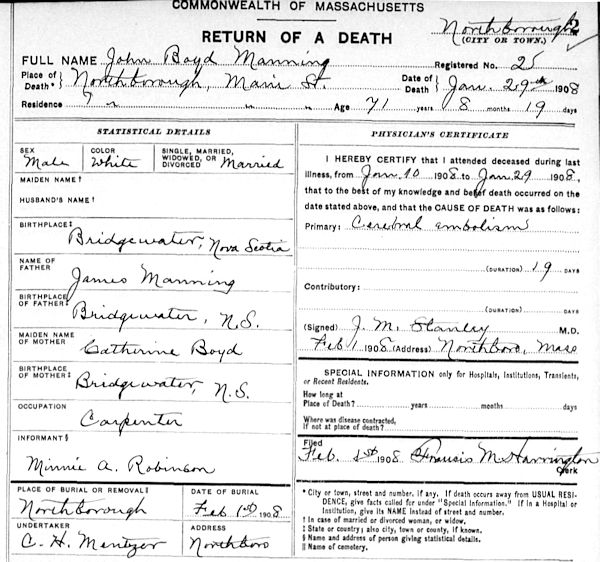 COMMONWEALTH OF MASSACHUSETTS
RETURN OF A DEATH
Northborough 2
(CITY OR TOWN.)
FULL NAME John Boyd Manning
Registered No. 25
Place of Death* } Northborough, Main St.
Date of Death } Jan. 29th 1908
Residence " " " " Age 71 years 8 months 19 days
STATISTICAL DETAILS
SEX Male
COLOR White
SINGLE, MARRIED, WIDOWED, OR DIVORCED Married
MAIDEN NAME†
HUSBAND'S NAME†
BIRTHPLACE‡
Bridgewater, Nova Scotia
NAME OF FATHER
James Manning
BIRTHPLACE OF FATHER‡
Bridgewater, N.S.
MAIDEN NAME OF MOTHER
Catherine Boyd
BIRTHPLACE OF MOTHER‡
Bridgewater, N.S.
OCCUPATION
Carpenter
INFORMANT§
Minnie A. Robinson
PLACE OF BURIAL OR REMOVAL‖
Northborough
DATE OF BURIAL
Feb 1st 1908
UNDERTAKER
C. H. Mentzer
ADDRESS
Northboro
PHYSICIAN'S CERTIFICATE
I HEREBY CERTIFY that I attended deceased during last
illness, from Jan. 10 1908 to Jan. 29 1908,
that to the best of my knowledge and belief death occurred on the
date stated above, and that the CAUSE OF DEATH was as follows:
Primary: Cerebral embolism
(DURATION) 19 DAYS
Contributory:
(DURATION) DAYS
(Signed) J. M. Stanley M.D.
Feb 1 1908 (Address) Northboro, Mass
SPECIAL INFORMATION only for Hospitals, Institutions, Transients,
or Recent Residents.
How long at
Place of Death? years months days
Where was disease contracted,
if not at place of death?
Filed
Feb. 1st 1908 Francis M. Harrington
Clerk
* City or town, street and number, if any. If death occurs away from USUAL RESI-
DENCE, give facts called for under "Special Information." If in a Hospital or
Institution, give its NAME instead of street and number.
† In case of married or divorced woman, or widow.
‡ State or country; also city, town or county, if known.
§ Name and address of person giving statistical details.
‖ Name of cemetery.